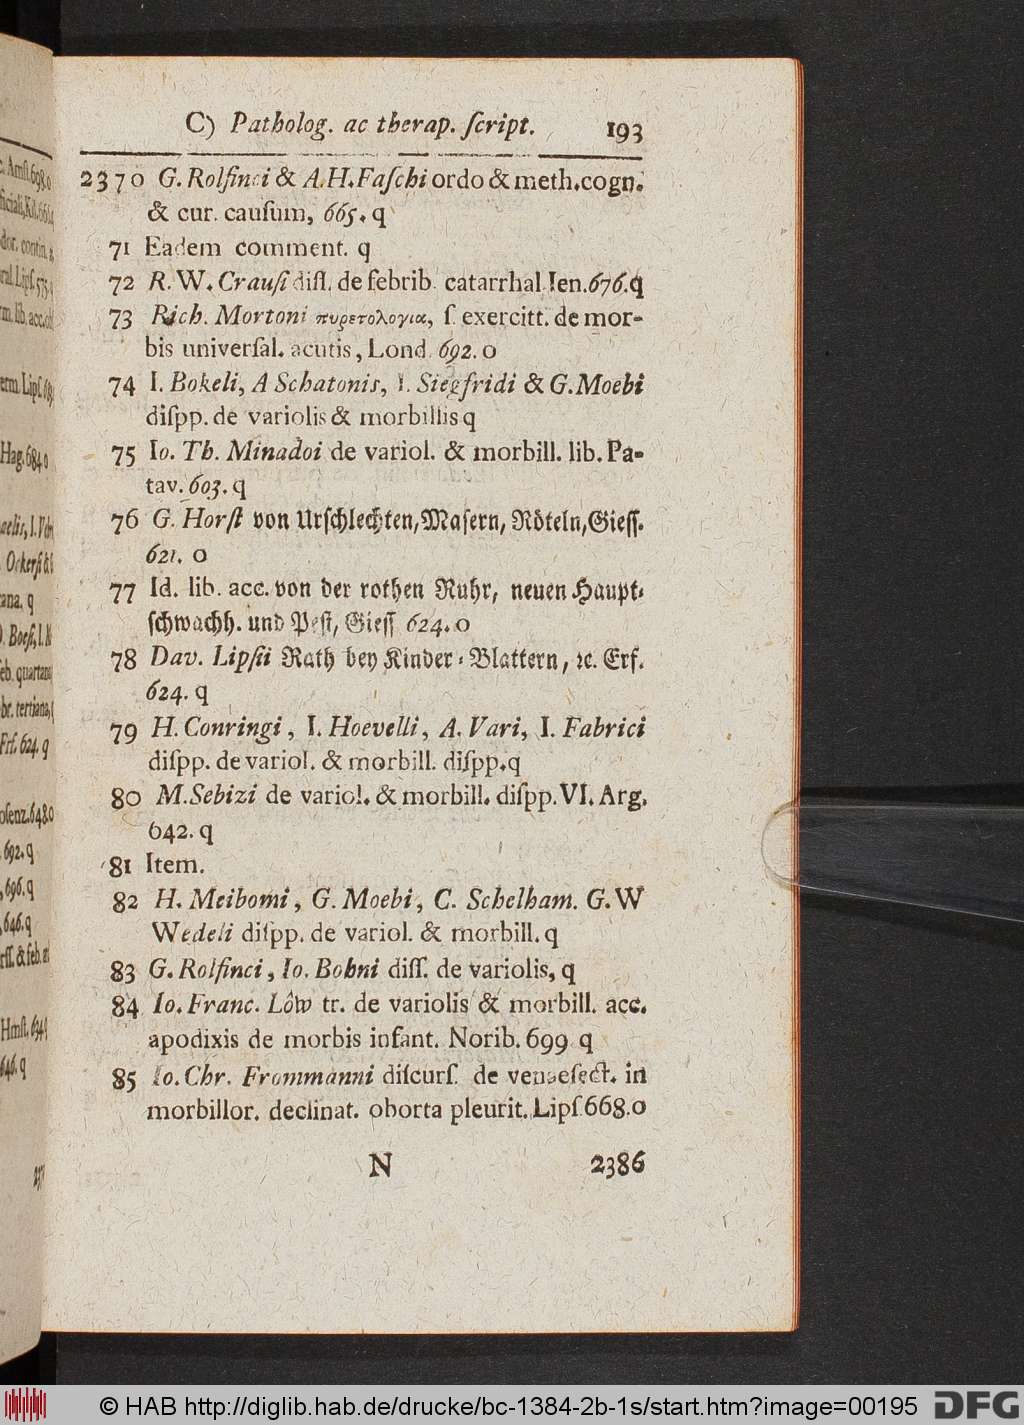 C) Patholog. ac therap. ſcript. 193
2370 G. Rolfinci & A.H.Faſchi ordo & meth.cogn.
& cur. cauſum, 665. q
71 Eadem comment. q
72 R. W. Crauſi diſſ. de febrib. catarrhal. Ien.676.q
73 Rich. Mortoni πυρετολογια, ſ. exercitt. de mor-
bis univerſal. acutis, Lond. 692. o
74 I. Bokeli, A Schatonis, I. Siegfridi & G.Moebi
diſpp. de variolis & morbillis q
75 Io. Th. Minadoi de variol. & morbill. lib. Pa-
tav. 603. q
76 G. Horſt von Urſchlechten, Maſern, Röteln, Gieſſ.
621. o
77 Id. lib. acc. von der rothen Ruhr, neuen Haupt-
ſchwachh. und Peſt, Gieſſ 624. o
78 Dav. Lipſii Rath bey Kinder-Blattern, ꝛc. Erf.
624. q
79 H. Conringi, I. Hoevelli, A. Vari, I. Fabrici
diſpp. de variol. & morbill. diſpp.q
80 M.Sebizi de variol. & morbill. diſpp. VI. Arg.
642. q
81 Item.
82 H. Meibomi, G. Moebi, C. Schelham. G. W
Wedeli diſpp. de variol. & morbill. q
83 G. Rolfinci, Io. Bohni diſſ. de variolis, q
84 Io. Franc. Lôw tr. de variolis & morbill. acc.
apodixis de morbis infant. Norib. 699 q
85 Io. Chr. Frommanni diſcurſ. de venaeſect. in
morbillor. declinat. oborta pleurit. Lipſ.668.o
N 2386
© HAB http://diglib.hab.de/drucke/bc-1384-2b-1s/start.htm?image=00195
DFG